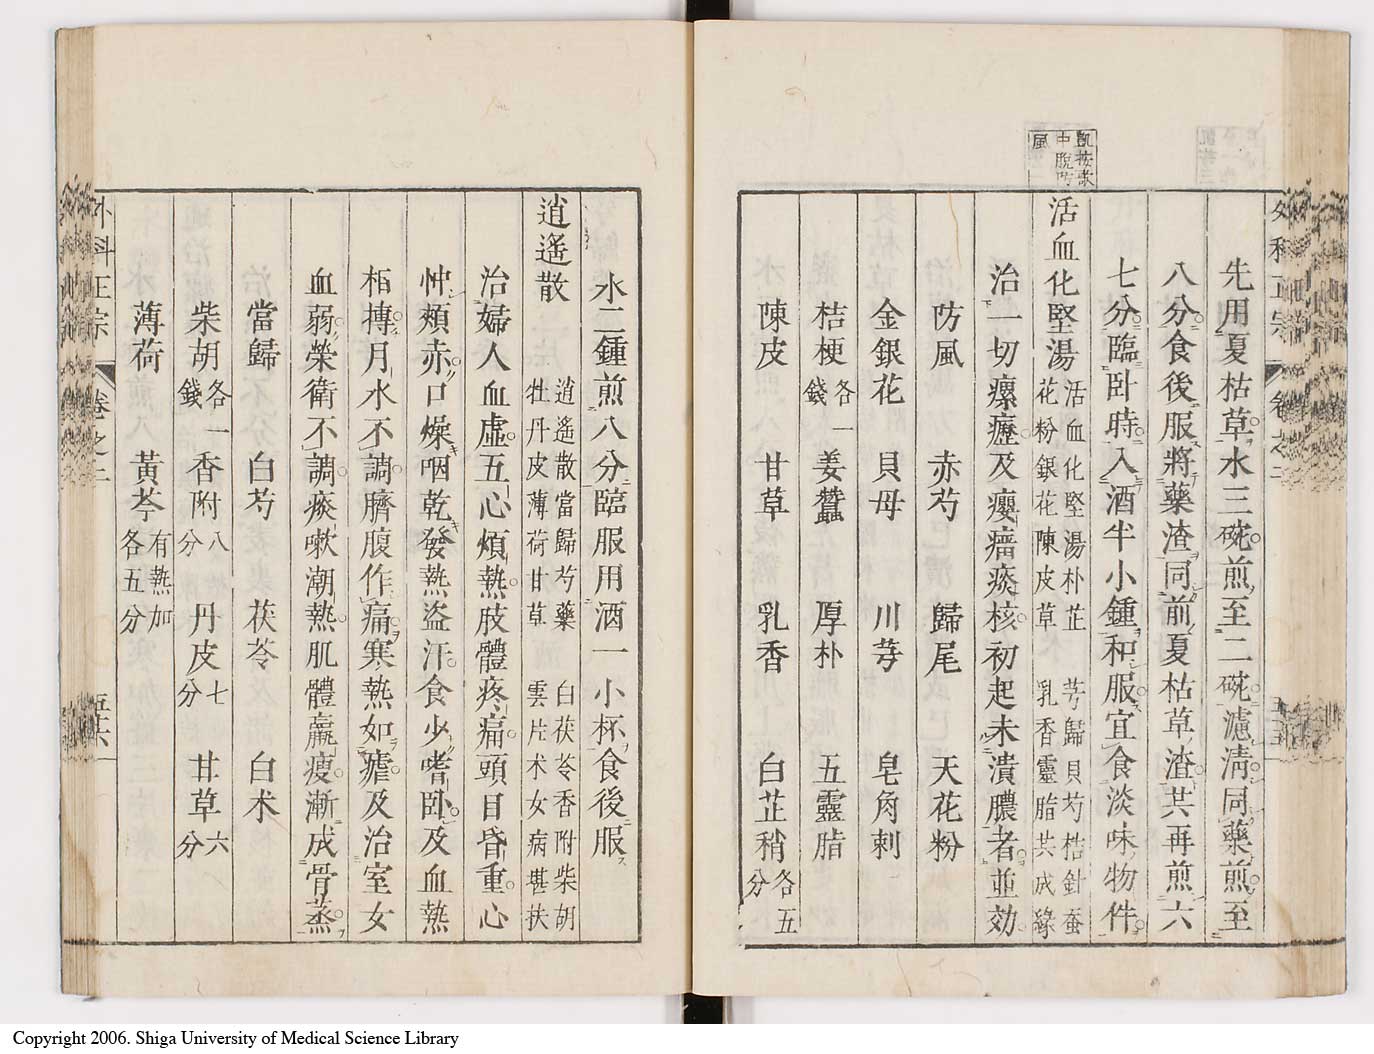 先用夏枯草水三碗煎至二碗濾淸同藥煎至
八分食後服將藥渣同前夏枯草渣共再煎六
七分臨臥時入酒半小鍾和服宜食淡味物件
活血化堅湯
活血化堅湯朴芷 芎歸貝芍桔針蚕
花粉銀花陳皮草 乳香靈脂共成緣
治一切瘰癧及癭瘤痰核初起未潰膿者並効
防風 赤芍 歸尾 天花粉
金銀花 貝母 川芎 皂角刺
桔梗各一錢 姜蠶 厚朴 五靈脂
陳皮 甘草 乳香 白芷稍各五分
外科正宗 卷之二
水二鍾煎八分臨服用酒一小杯食後服
逍遙散
逍遙散當歸芍藥 白茯苓香附柴胡
牡丹皮薄荷甘草 雲片术女病堪扶
治婦人血虛五心煩熱肢體疼痛頭目昏重心
忡頰赤口燥咽乾發熱盜汗食少嗜臥及血熱
相搏月水不調臍腹作痛寒熱如瘧及治室女
血弱榮衛不調痰嗽潮熱肌體羸瘦漸成骨蒸
當歸 白芍 茯苓 白术
柴胡各一錢 香附八分 丹皮七分 甘草六分
薄荷 黃芩有熱加各五分
外科正宗 卷之二 五十六
Copyright 2006. Shiga University of Medical Science Library